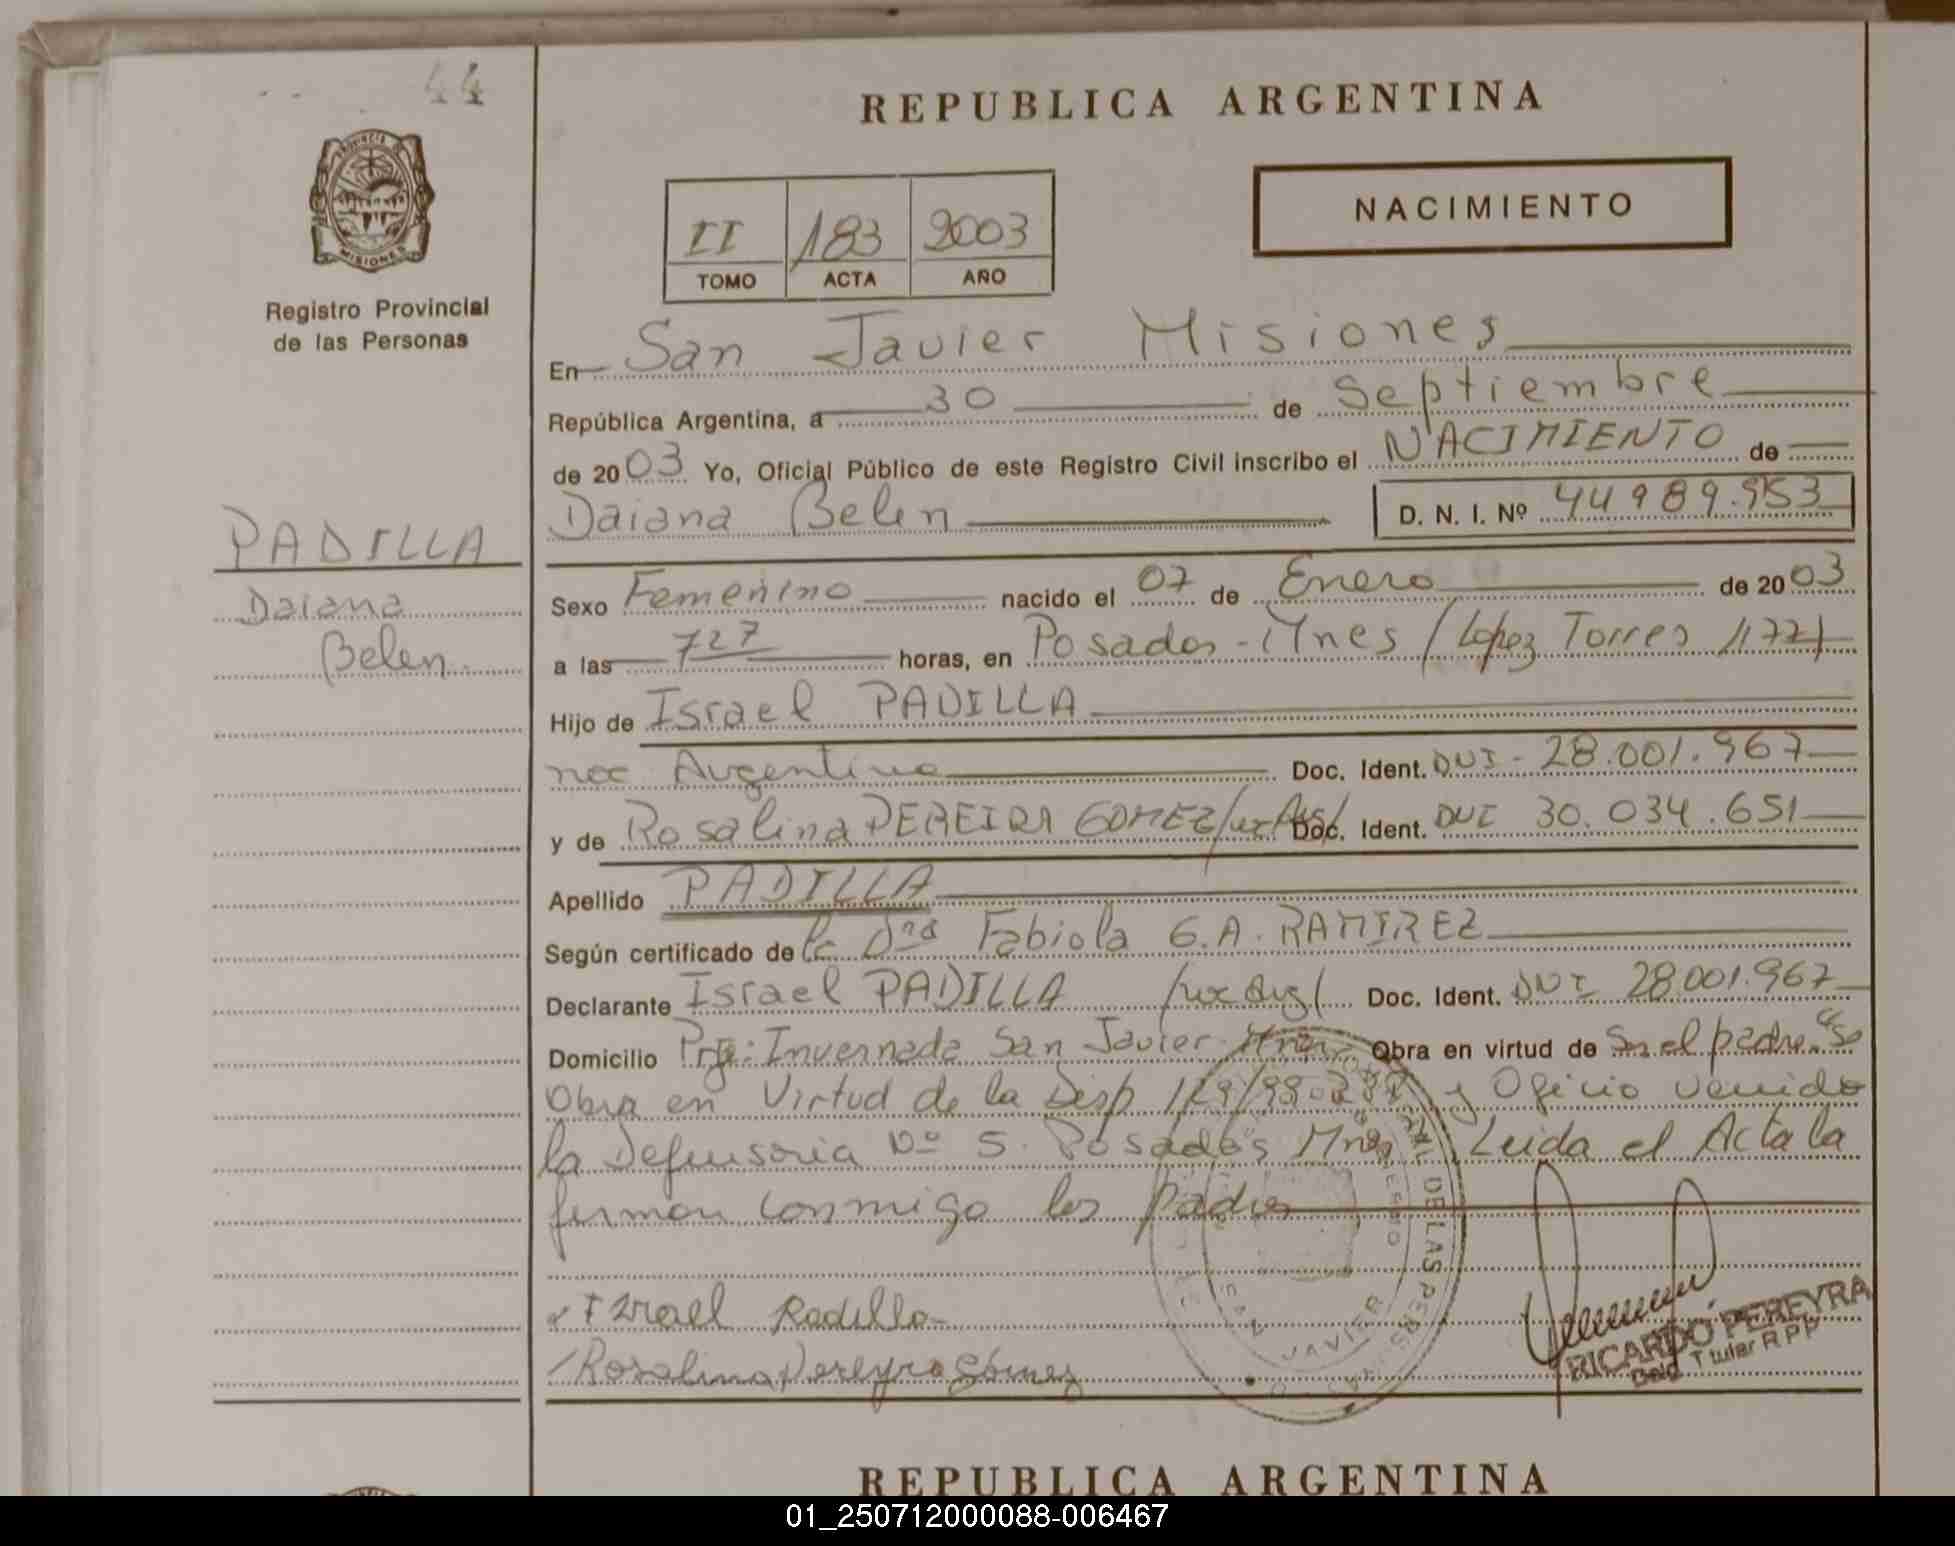 44
PROVINCIA DE
MISIONES
Registro Provincial
de las Personas
PADILLA
Daiana
Belen
REPUBLICA ARGENTINA
II 183 2003
TOMO ACTA AÑO
NACIMIENTO
En San Javier Misiones
República Argentina, a 30 de Septiembre
de 2003 Yo, Oficial Público de este Registro Civil inscribo el NACIMIENTO de
Daiana Belen D. N. I. Nº 44989.953
Sexo Femenino nacido el 07 de Enero de 2003
a las 727 horas, en Posadas - Mnes / Lopez Torres 1177/
Hijo de Israel PADILLA
nac Argentino Doc. Ident. DNI - 28.001.967
y de Rosalina PEREIRA GOMEZ Doc. Ident. DNI 30.034.651
Apellido PADILLA
Según certificado de la Dra Fabiola G.A. RAMIREZ
Declarante Israel PADILLA /nac Arg/ Doc. Ident. DNI 28.001.967
Domicilio Invernada San Javier Obra en virtud de Ser el padre. "Se
Obra en Virtud de la Disp 129/98 y Oficio venido
la Defensoria Nº 5. Posadas Mnes Leida el Acta la
firman conmigo los padres
DE LAS PERSONAS
SAN JAVIER
Israel Padilla
Rosalina Pereyra Gómez
RICARDO PEREYRA
Deleg Titular R P P
REPUBLICA ARGENTINA
01_250712000088-006467